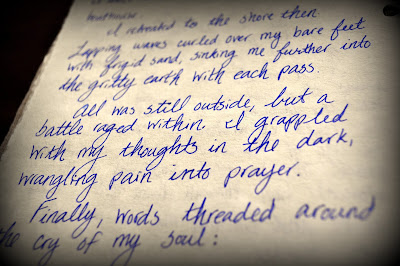 I retreated to the shore then
Lapping waves curled over my bare feet
with frigid sand, sinking me further into
the gritty earth with each pass.
All was still outside, but a
battle raged within. I grappled
with my thoughts in the dark,
wrangling pain into prayer.
Finally, words threaded around
the cry of my soul: